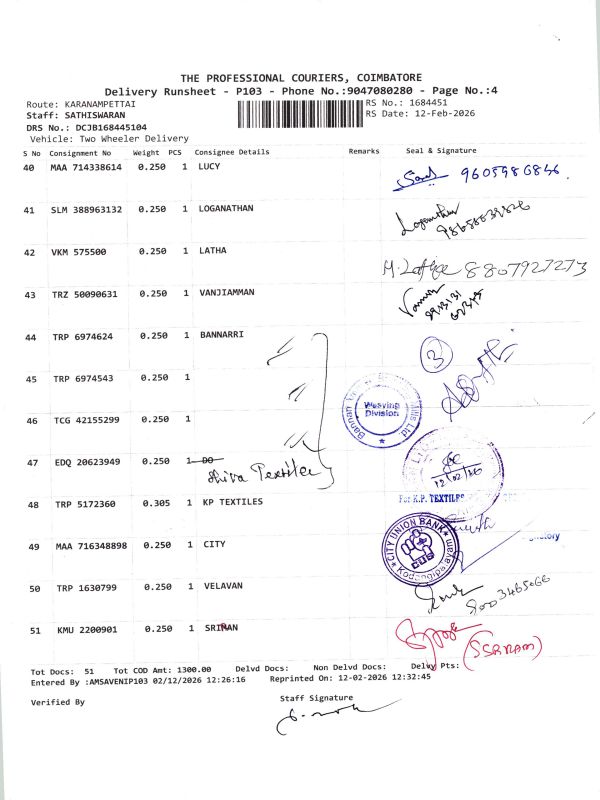 THE PROFESSIONAL COURIERS, COIMBATORE
Delivery Runsheet - P103 - Phone No.:9047080280 - Page No.:4
Route: KARANAMPETTAI RS No.: 1684451
Staff: SATHISWARAN RS Date: 12-Feb-2026
DRS No.: DCJB168445104
Vehicle: Two Wheeler Delivery
S No Consignment No Weight PCS Consignee Details Remarks Seal & Signature
40 MAA 714338614 0.250 1 LUCY
41 SLM 388963132 0.250 1 LOGANATHAN
Loganathan
42 VKM 575500 0.250 1 LATHA
8807927273
43 TRZ 50090631 0.250 1 VANJIAMMAN
44 TRP 6974624 0.250 1 BANNARRI
3
45 TRP 6974543 0.250 1
Weaving
Division
46 TCG 42155299 0.250 1
47 EDQ 20623949 0.250 1 DO
Shiva Textiles
12/02/26
48 TRP 5172360 0.305 1 KP TEXTILES
For K.P. TEXTILES
49 MAA 716348898 0.250 1 CITY
CITY UNION BANK
CUB
50 TRP 1630799 0.250 1 VELAVAN
51 KMU 2200901 0.250 1 SRIRAN
Tot Docs: 51 Tot COD Amt: 1300.00 Delvd Docs: Non Delvd Docs: Delvy Pts:
Entered By :AMSAVENIP103 02/12/2026 12:26:16 Reprinted On: 12-02-2026 12:32:45
Verified By Staff Signature